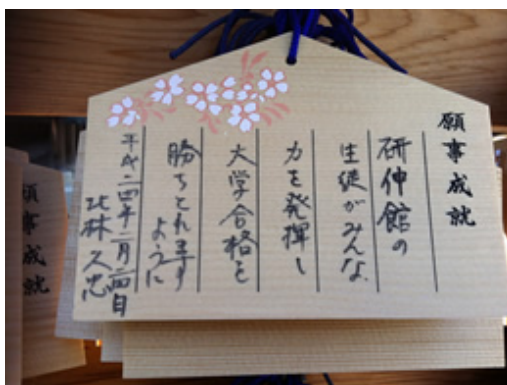 願事成就
研伸館の
生徒がみんな
力を発揮し
大学合格を
勝ちとれます
ように
平成二四年二月二四日
北林久忠
願事成就